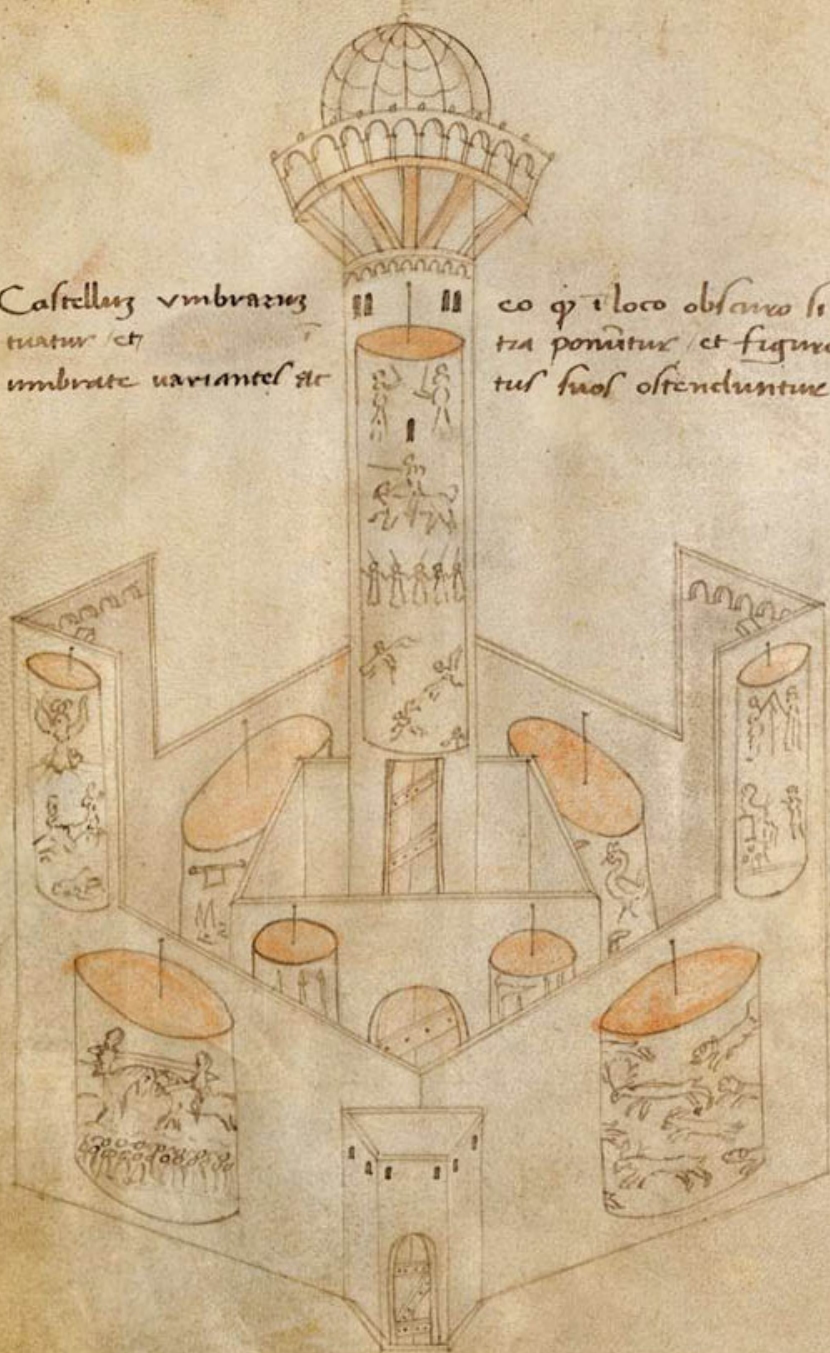 Castelluz vmbraruz eo qꝙ ī loco obscuro si
tuatur et tra ponūtur et figure
umbrate variantes ac tus suos ostenduntur